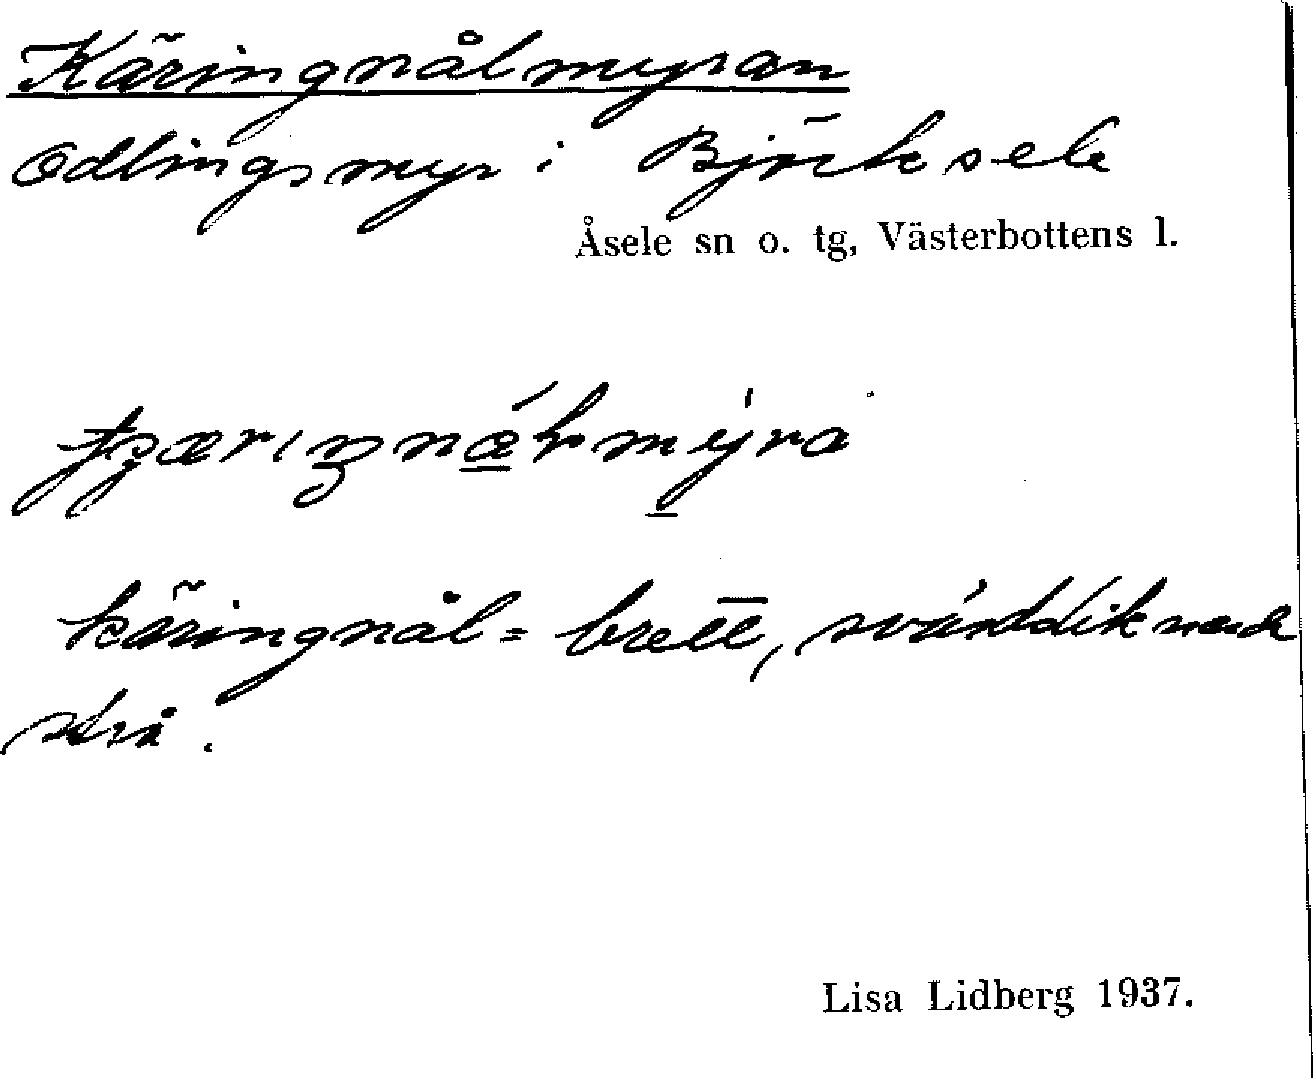 Käringnålmyran
Odlingsmyr i Björksele
Åsele sn o. tg, Västerbottens l.
käringnål = brett, svärdliknande
strå.
Lisa Lidberg 1937.